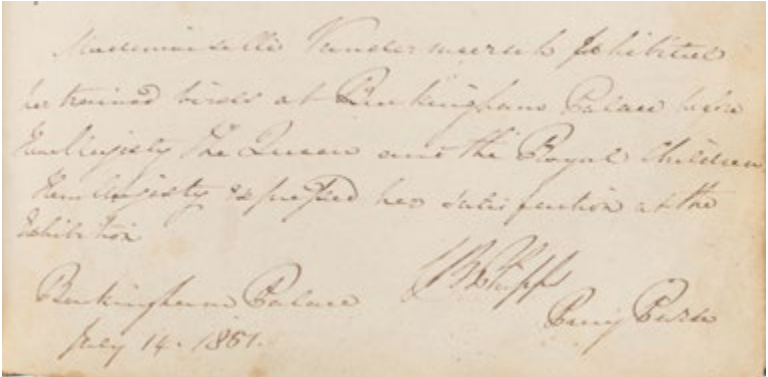 Mademoiselle Vandermeersch exhibited
her trained birds at Buckingham Palace before
Her Majesty The Queen and the Royal Children,
Her Majesty expressed her satisfaction at the
Exhibition
C B Phipps
Buckingham Palace
Privy Purse
July 14. 1851.